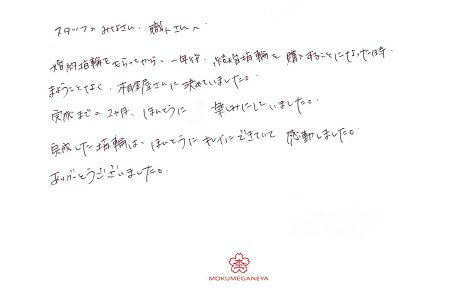 スタッフのみなさん、職人さんへ
婚約指輪をもらってから、一年後、結婚指輪を購入することになった時
まようことなく、杢目屋さんに決めていました。
完成までの2ヶ月、ほんとうに 楽しみにしていました。
完成した指輪は、ほんとうにキレイにできていて 感動しました。
ありがとうございました。
MOKUMEGANEYA